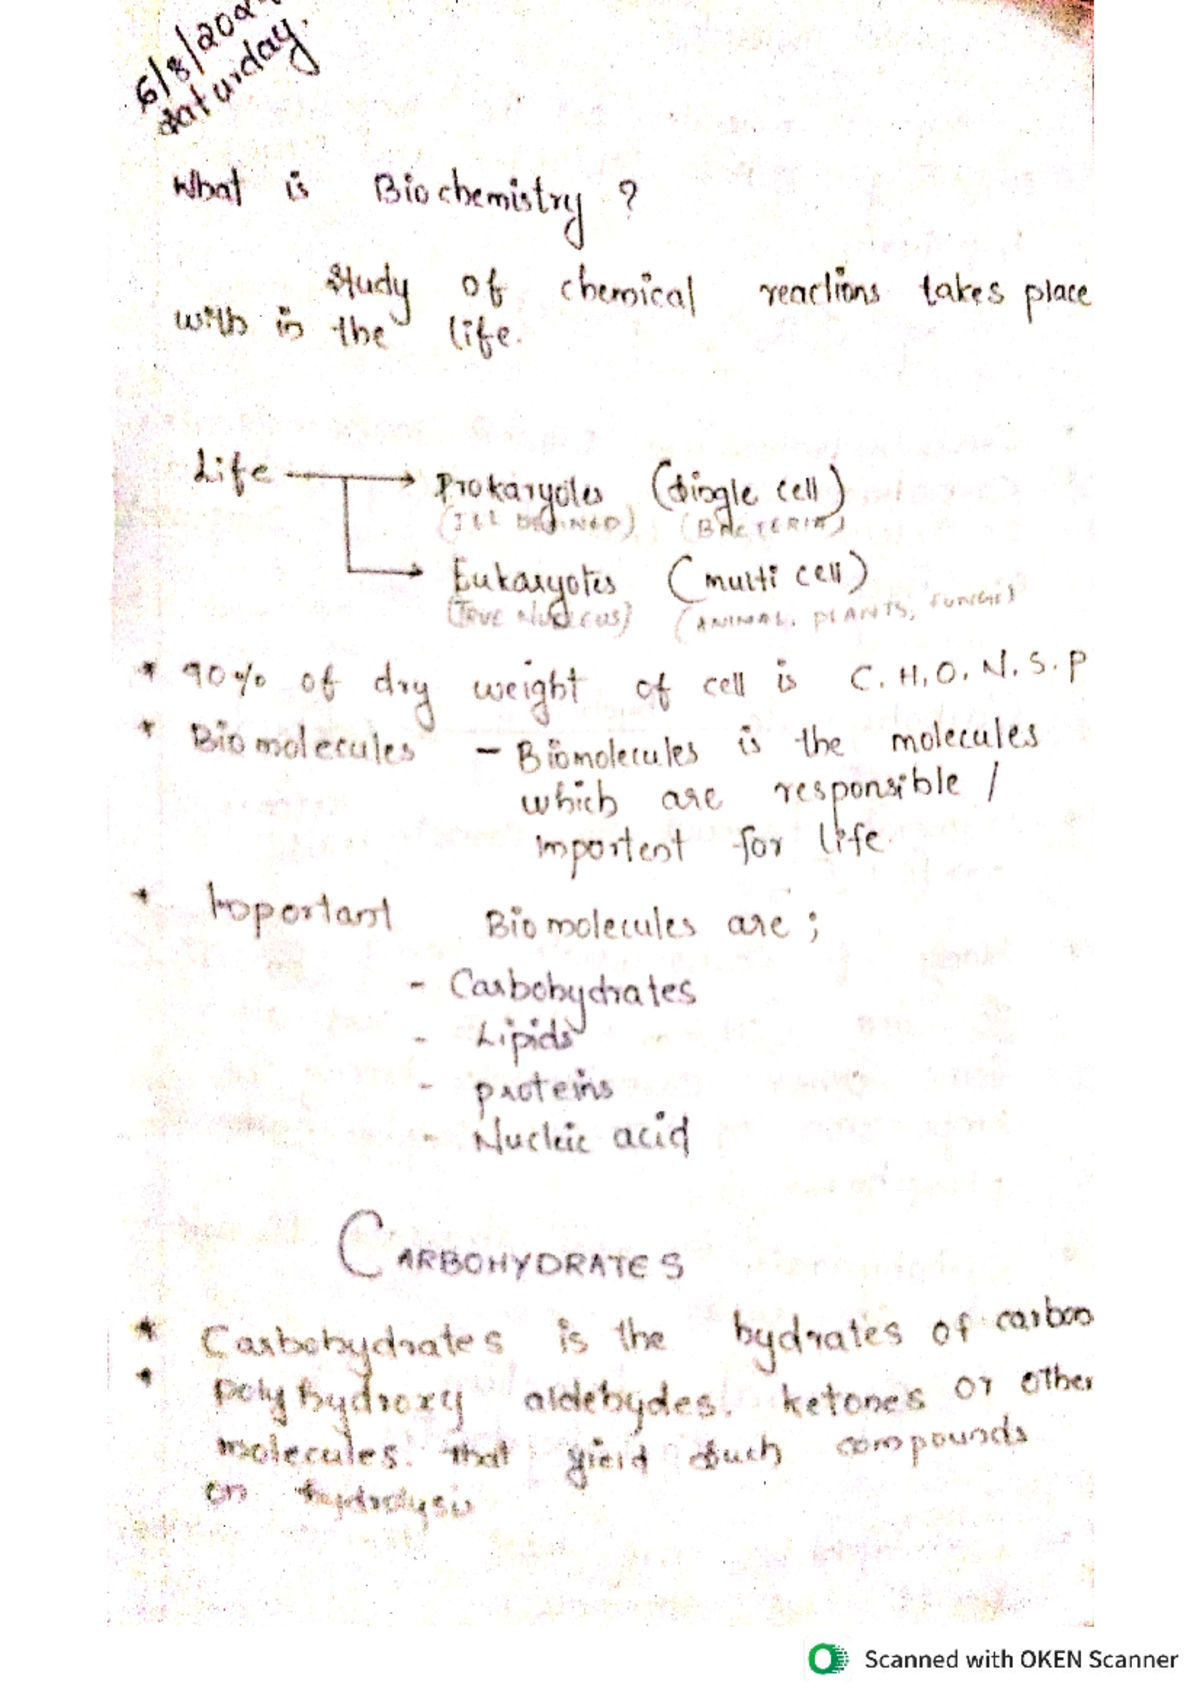 6/8/202
Saturday.
What is Biochemistry ?
Study of chemical reactions takes place
with in the life.
Life → Prokaryotes (Single cell)
(ILL DEFINED) (BACTERIA)
→ Eukaryotes (multi cell)
(TRUE NUCLEUS) (ANIMAL, PLANTS, FUNGI)
* 90% of dry weight of cell is C. H, O, N, S. P
* Biomolecules - Biomolecules is the molecules
which are responsible /
importent for life.
* Important Biomolecules are ;
- Carbohydrates
- Lipids
- proteins
- Nucleic acid
CARBOHYDRATES
* Carbohydrates is the hydrates of carbon
* Polyhydroxy aldehydes. ketones or other
molecules. that yield such compounds
on hydrolysis
Scanned with OKEN Scanner